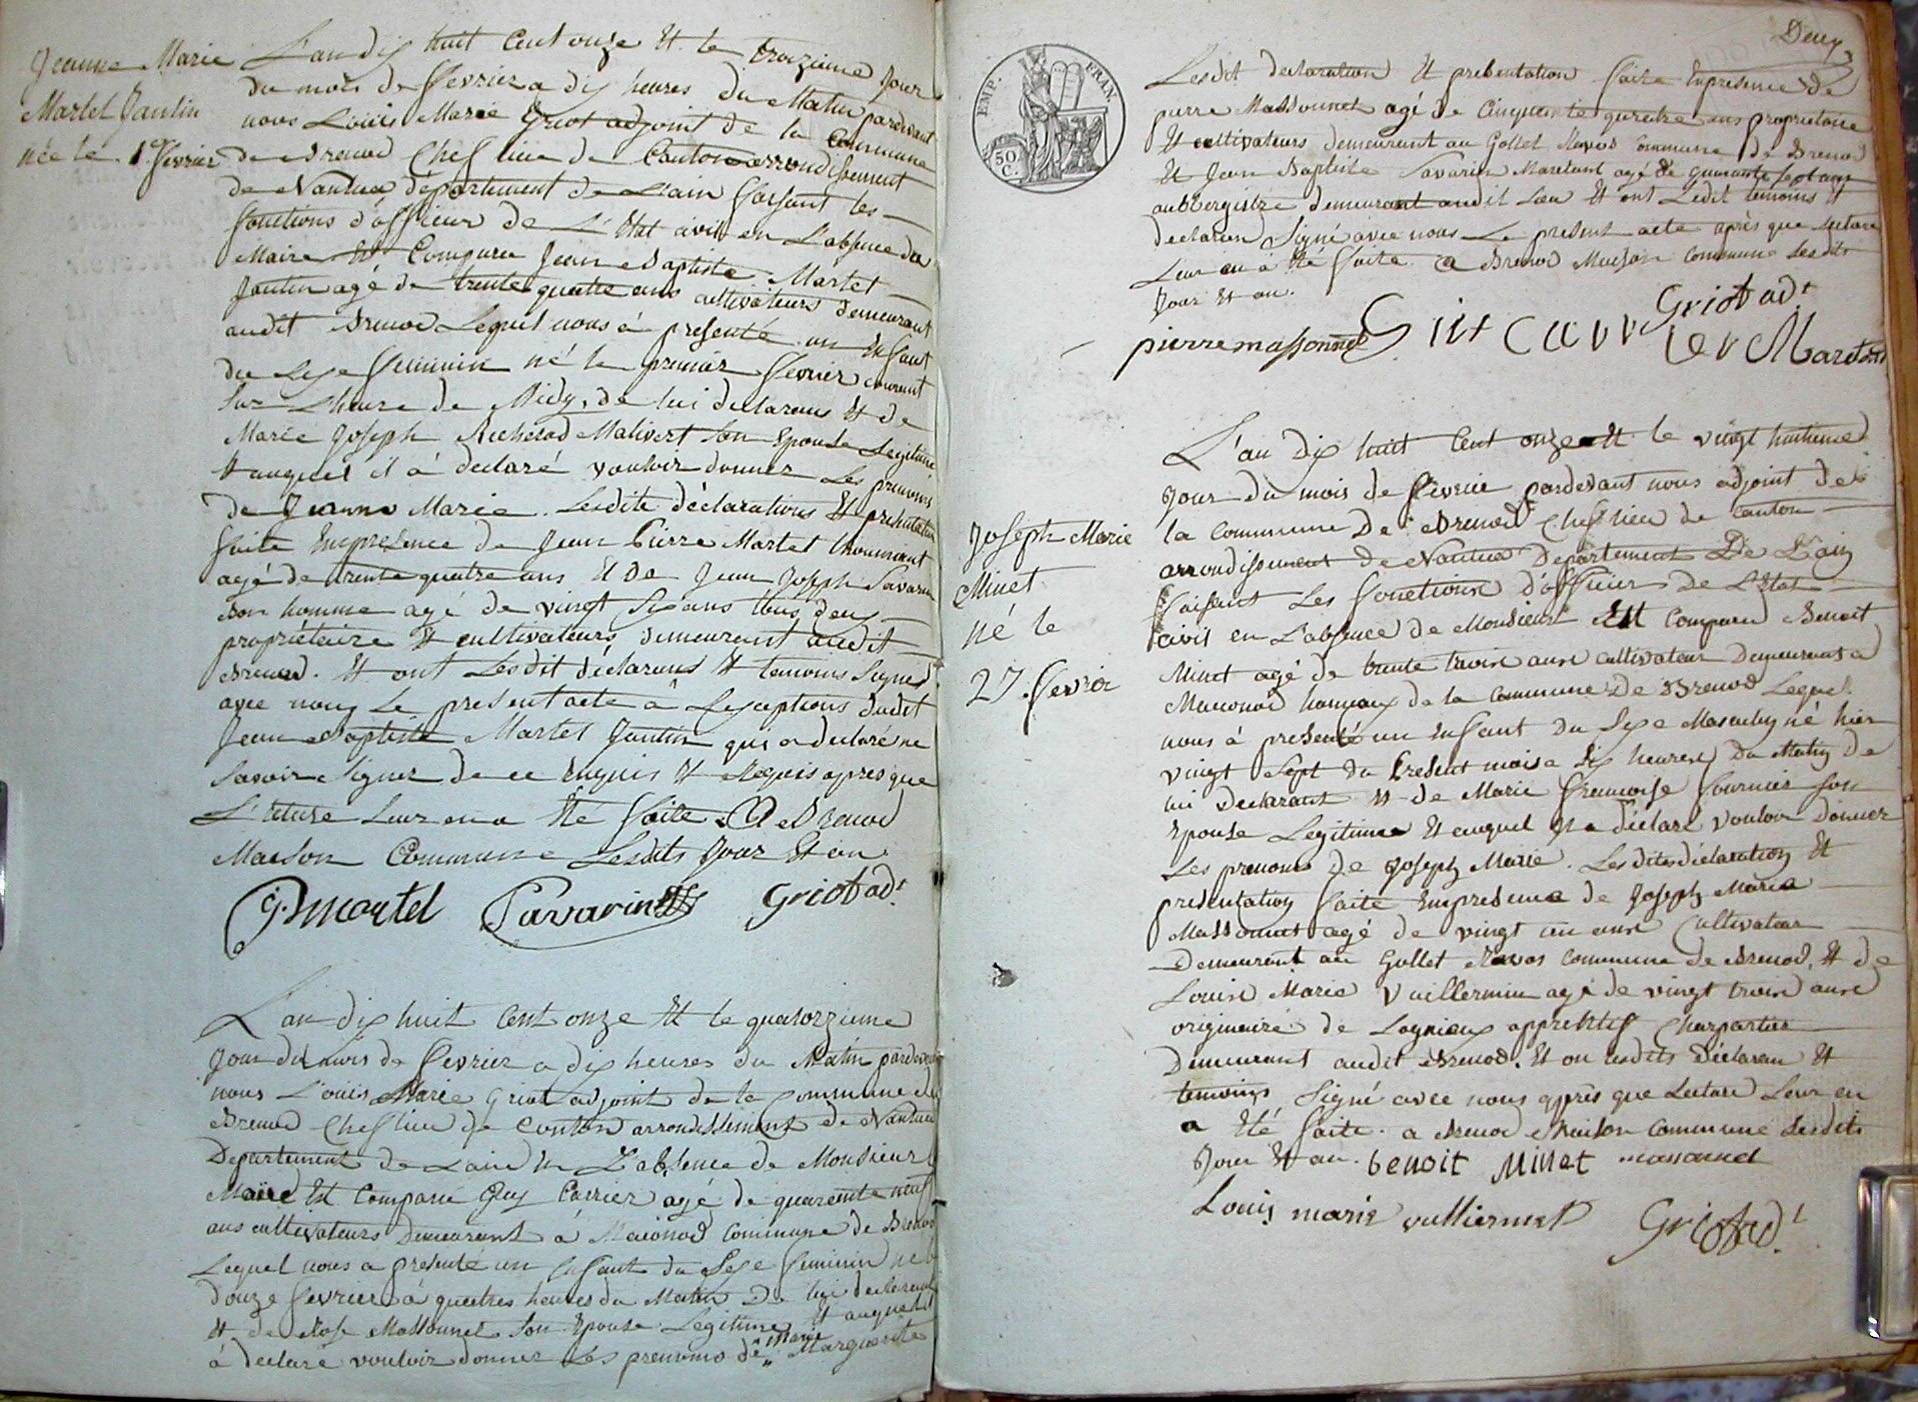 Jeanne Marie
Martel Jantin
née le 1er fevrier
L'an dix huit Cent onze Et le troizieme Jour
du mois de fevrier a dix heures du Matin pardevant
nous Louis Marie Griot adjoint de la Commune
de Brenod Chef lieu de Canton arrondissement
de Nantua département de L'ain faisant les
fonctions d'officier de L'Etat civil en L'absence du
Maire Est Comparu Jean Baptiste Martel
Jantin agé de trente quatre ans cultivateurs demeurant
audit Brenod Lequel nous à presenté un Enfant
du Sexe feminin né le premier fevrier courant
Sur Lheure de Midy, de lui declarans Et de
Marie Joseph Malivert Son Epouse Legitime
Et auquel il à declaré vouloir donner Les prenoms
de Jeanne Marie. Lesdite déclarations Et presentation
faite Enpresence de Jean Pierre Martel
agé de trente quatre ans Et De Jean Joseph Savarin
Bon homme agé de vingt Six ans tous deux
propriétaire Et cultivateurs demeurant audit
Brenod. Et ont Lesdit déclarans Et temoins Signés
avec nous Le present acte à Lexceptions dudit
Jean Baptiste Martel Jantin qui a declaré ne
Savoir Signer de ce Enquis Et Requis apres que
L'ecture Leur en a Eté faite. A Brenod
Maison Commune Lesdits Jour Et an
martel Savarin Griot adt
L'an dix huit Cent onze Et le quatorzieme
Jour du mois de fevrier a dix heures du Matin pardevant
nous Louis Marie Griot adjoint de la Commune de
Brenod Chef lieu de Canton arrondissement de Nantua
Departement de Lain En L'absence de Monsieur
Maire Est Comparu Guy Carrier agé de quarente neuf
ans cultivateurs Demeurant à Maconod Commune de Brenod
Lequel nous a presenté un Enfant du Sexe feminin né le
douze fevrier à quattres heures du Matin De lui declarant
Et de Rose Massonnet Son Epouse Legitime Et auquel il
à declaré vouloir donner Les prenoms de Marie Marguerite
Deux
EMP. FRAN.
50 C.
Lesdit declaration Et presentation faite Enpresence de
pierre Massonnet agé de Cinquente quatre ans proprietaire
Et cultivateurs demeurant au Gollet Commune de Brenod
Et Jean Baptiste Savarin Maretant agé de quarante Sept ans
aubbergiste demeurant audit Lieu Et ont Ledit temoins Et
declaran Signé avec nous Le present acte après que Lecture
Leur en à Eté faite A Brenod Maison Commune Lesdits
Jour Et an.
Griot adt
pierre massonnet
Joseph Marie
Minet
né le
27 fevrier
L'an dix huit Cent onze Et le vingt huitieme
Jour du mois de fevrier pardevant nous adjoint de
la Commune De Brenod Chef lieu de Canton
arrondissement de Nantua Departement De L'ain
faisant Les fonctions d'officier de L'Etat
civil en L'absence de Monsieur Est Comparu Benoit
Minet agé de trente trois ans cultivateur Demeurant a
Maconod hameaux de la Commune De Brenod Lequel
nous à presenté un Enfant du Sexe Masculin né hier
vingt Sept du Present mois a Six heures Du Matin De
lui Declarant Et de Marie Francoise Fournier Son
Epouse Legitime Et auquel Il a déclaré Vouloir Donner
Les prenoms De Joseph Marie. Lesdites déclaration Et
presentation faite Enpresence de Joseph Marie
Massonnet agé de vingt un ans Cultivateur
Demeurant au Gollet Commune de Brenod, Et de
Louis Marie Vuillermin agé de vingt trois ans
originaire de Lagnieux apprentif Charpantier
Demeurant audit Brenod. Et on lesdits Déclaran Et
temoins Signé avec nous après que Lecture Leur en
a Eté faite. a Brenod Maison Commune Lesdits
Jour Et an. benoit Minet massonnet
Louis marie vulliermet Griot ad.t